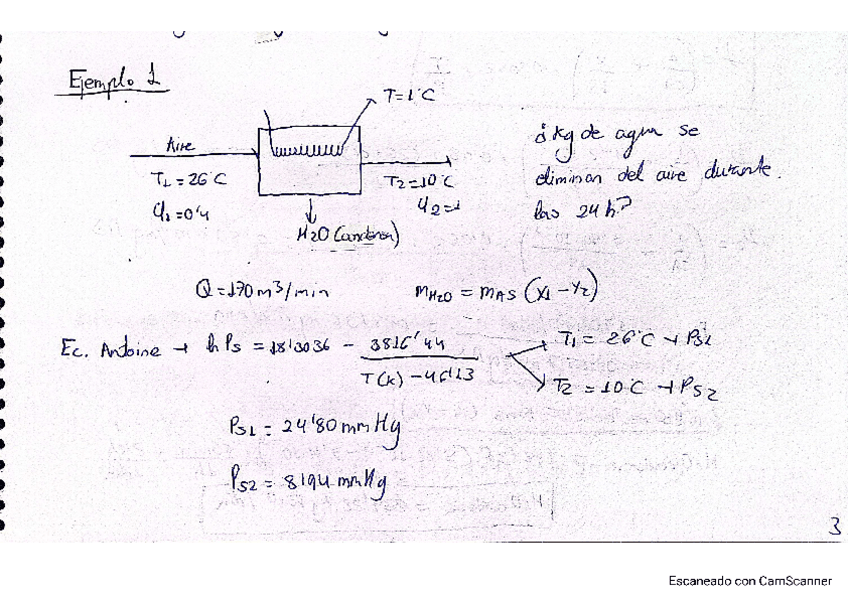 Ejemplo 1
T=1°C
Aire
T1 = 26°C
φ1 =0'4
T2 = 10°C
φ2=1
H2O (condensa)
¿kg de agua se
eliminan del aire durante
las 24h?
Q = 170 m3/min
mH2O = mAS (X1 - X2)
Ec. Antoine → ln Ps = 18'3036 - 3816'44 / T(K) - 46'13
T1 = 26°C → Ps1
T2 = 10°C → Ps2
Ps1 = 24'80 mmHg
Ps2 = 8194 mmHg
3
Escaneado con CamScanner